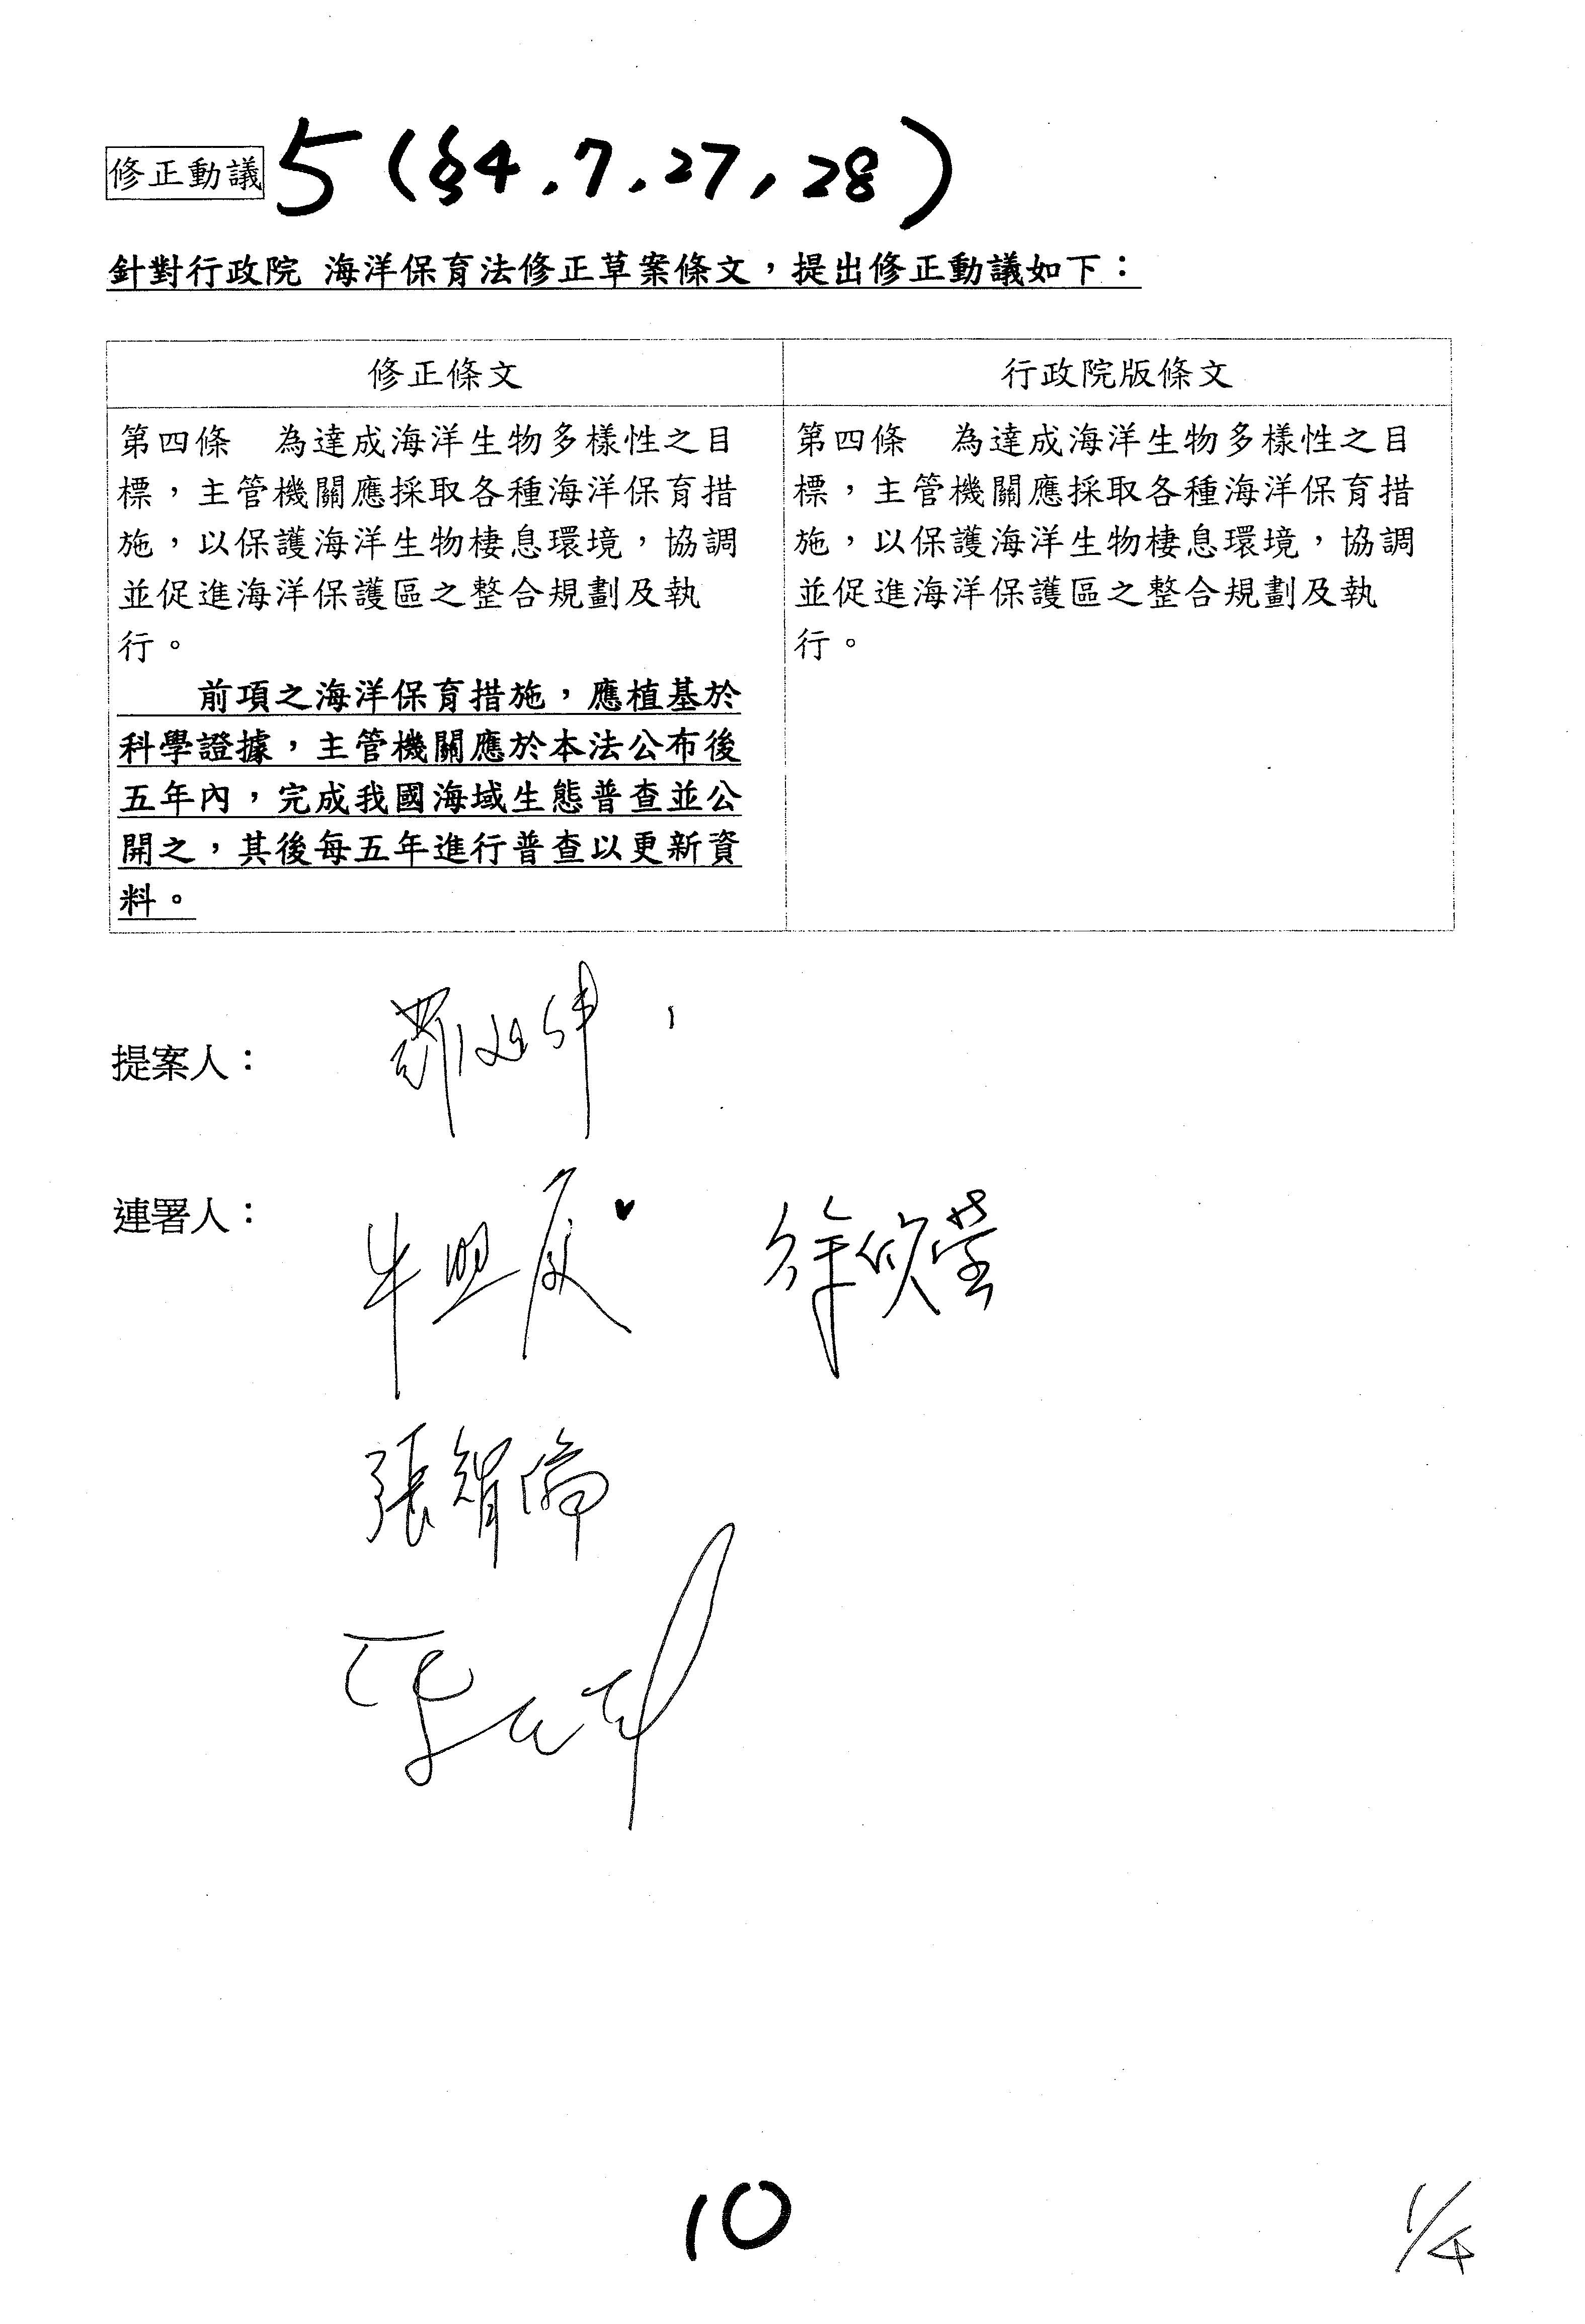 修正動議 5(§4.7.27,28)
針對行政院 海洋保育法修正草案條文，提出修正動議如下：
修正條文
第四條　為達成海洋生物多樣性之目
標，主管機關應採取各種海洋保育措
施，以保護海洋生物棲息環境，協調
並促進海洋保護區之整合規劃及執
行。
前項之海洋保育措施，應植基於
科學證據，主管機關應於本法公布後
五年內，完成我國海域生態普查並公
開之，其後每五年進行普查以更新資
料。
行政院版條文
第四條　為達成海洋生物多樣性之目
標，主管機關應採取各種海洋保育措
施，以保護海洋生物棲息環境，協調
並促進海洋保護區之整合規劃及執
行。
提案人：
連署人：
徐欣瑩
張智倫
10
1/4